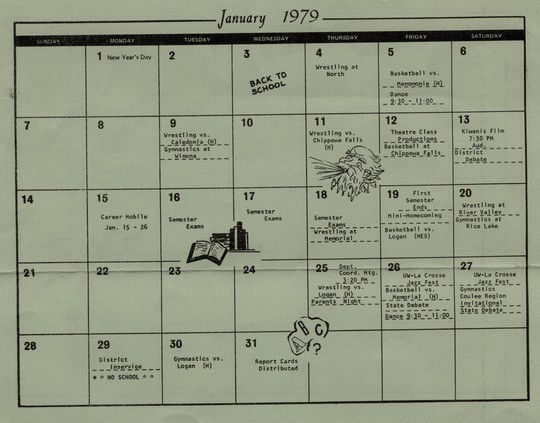 January 1979
SUNDAY MONDAY TUESDAY WEDNESDAY THURSDAY FRIDAY SATURDAY
1 New Year's Day
2
3
BACK TO
SCHOOL
4
Wrestling at
North
5
Basketball vs.
Menomonie (H)
Dance
9:30 - 11:00
6
7
8
9
Wrestling vs.
Caledonia (H)
Gymnastics at
Winona
10
11
Wrestling vs.
Chippewa Falls
(H)
12
Theatre Class
Productions
Basketball at
Chippewa Falls
13
Kiwanis Film
7:30 PM
Aud.
District
Debate
14
15
Career Mobile
Jan. 15 - 26
16
Semester
Exams
17
Semester
Exams
18
Semester
Exams
Wrestling at
Memorial
19
First
Semester
Ends
Mini-Homecoming
Basketball vs.
Logan (MES)
20
Wrestling at
River Valley
Gymnastics at
Rice Lake
21
22
23
24
25
Dept.
Coord. Mtg.
3:20 PM
Wrestling vs.
Logan (H)
Parents Night
26
UW-La Crosse
Jazz Fest
Basketball vs.
Memorial (H)
State Debate
Dance 9:30 - 11:00
27
UW-La Crosse
Jazz Fest
Gymnastics
Coulee Region
Invitational
State Debate
28
29
District
Inservice
* * NO SCHOOL * *
30
Gymnastics vs.
Logan (H)
31
Report Cards
Distributed
A
C
?